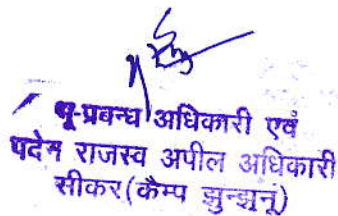 भू-प्रबन्ध अधिकारी एवं
पदेन राजस्व अपील अधिकारी
सीकर(कैम्प झुन्झुनू)